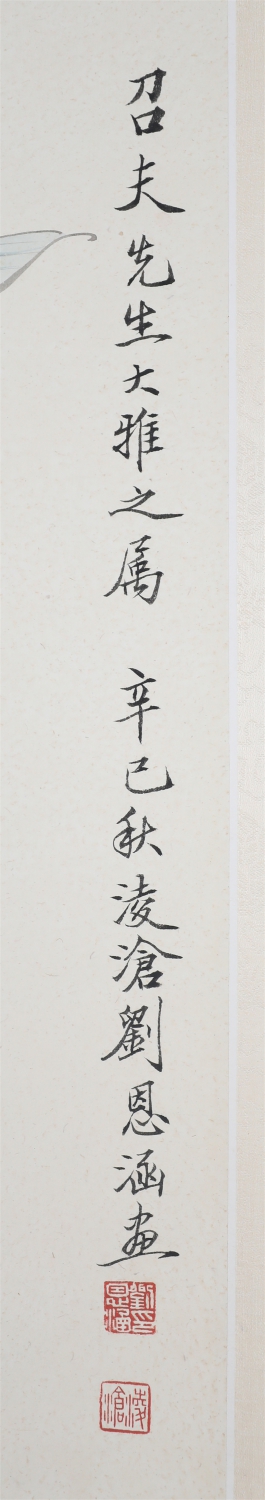 召夫先生大雅之属 辛巳秋淩滄劉恩涵画
劉恩涵印
淩滄